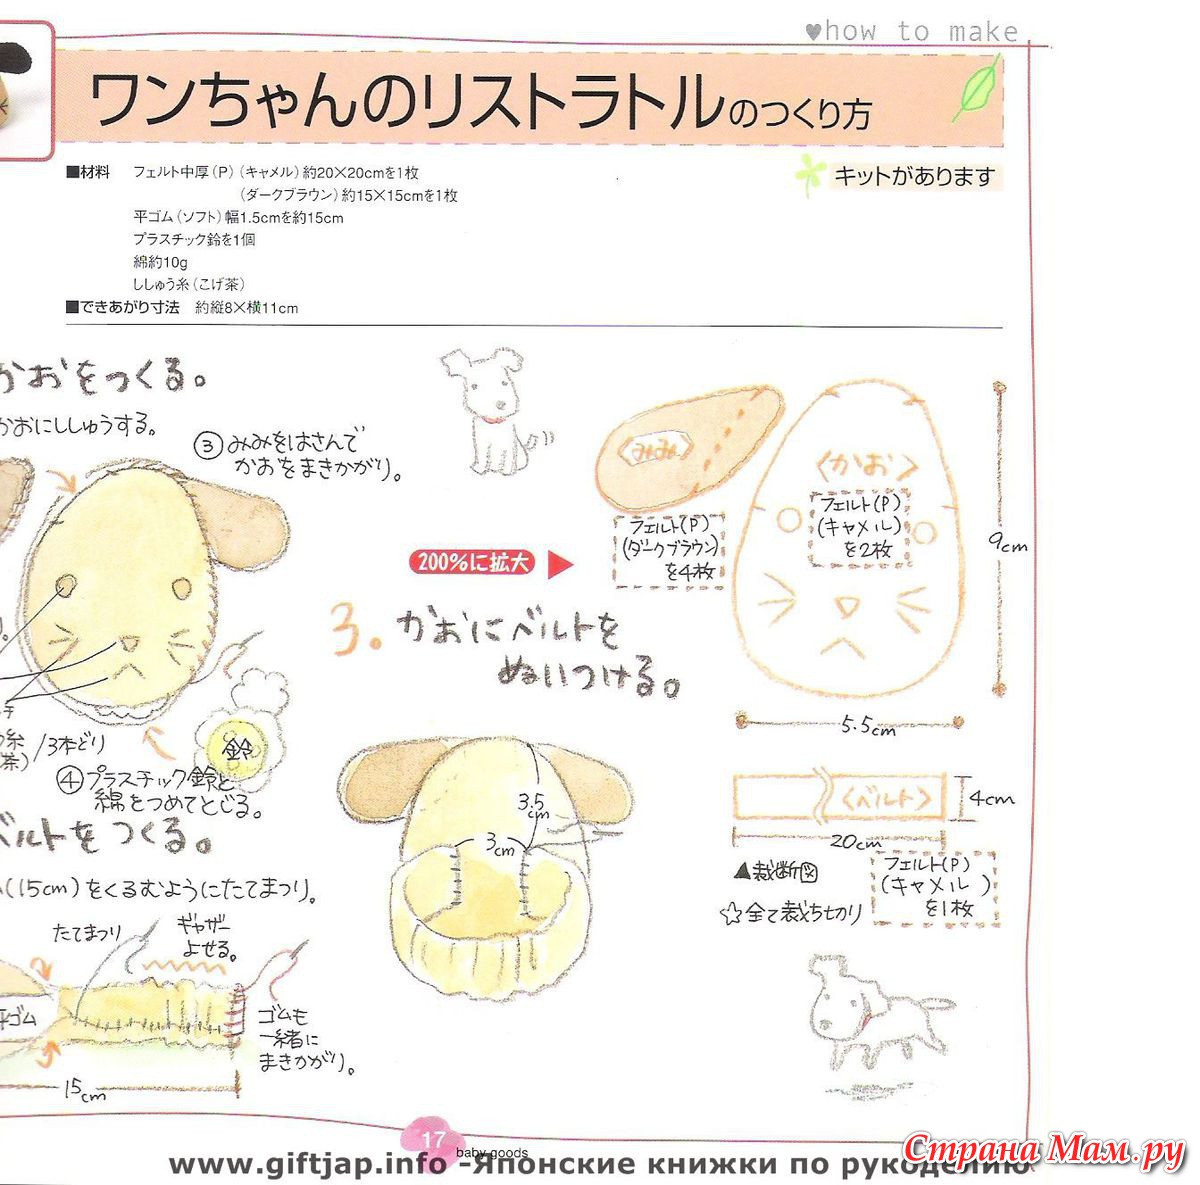 ♥how to make
ワンちゃんのリストラトルのつくり方
キットがあります
■材料 フェルト中厚(P)(キャメル)約20×20cmを1枚
(ダークブラウン)約15×15cmを1枚
平ゴム(ソフト)幅1.5cmを約15cm
プラスチック鈴を1個
綿約10g
ししゅう糸(こげ茶)
■できあがり寸法 約縦8×横11cm
かおをつくる。
かおにししゅうする。
③みみをはさんで
かおをまきかがり。
鈴
糸/3本どり
茶)
④プラスチック鈴と
綿をつめてとじる。
200%に拡大
<みみ>
フェルト(P)
(ダークブラウン)
を4枚
<かお>
フェルト(P)
(キャメル)
を2枚
9cm
5.5cm
<ベルト>
4cm
20cm
▲裁断図
☆全て裁ち切り
フェルト(P)
(キャメル)
を1枚
3。かおにベルトを
ぬいつける。
3.5cm
3cm
ベルトをつくる。
(15cm)をくるむようにたてまつり。
たてまつり
ギャザー
よせる。
平ゴム
ゴムも
一緒に
まきかがり。
15cm
17
baby goods
www.giftjap.info -Японские книжки по рукоделию
Страна Мам.ру